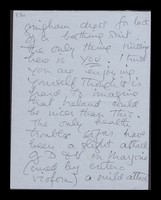 gingham dress for lack
of a bathing suit.
The only thing missing
here is you. I trust
you are enjoying
yourself though it is
hard to imagine
that Ireland could
be nicer than this.
The only health
troubles so far have
been a slight attack
of D & V in Marjorie
(cured by entero
vioform) a mild attack